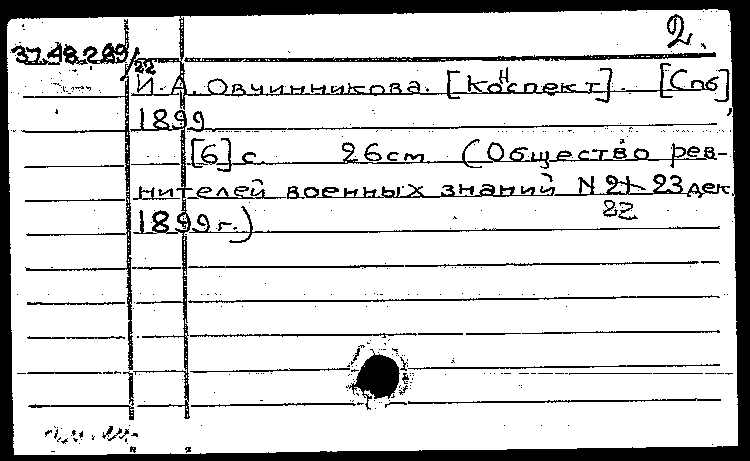 2.
37.48.289/22
И. А. Овчинникова. [Конспект]. [Спб],
1899
[6] с. 26см (Общество рев-
нителей военных знаний N 21 23 дек.
22
1899 г.)